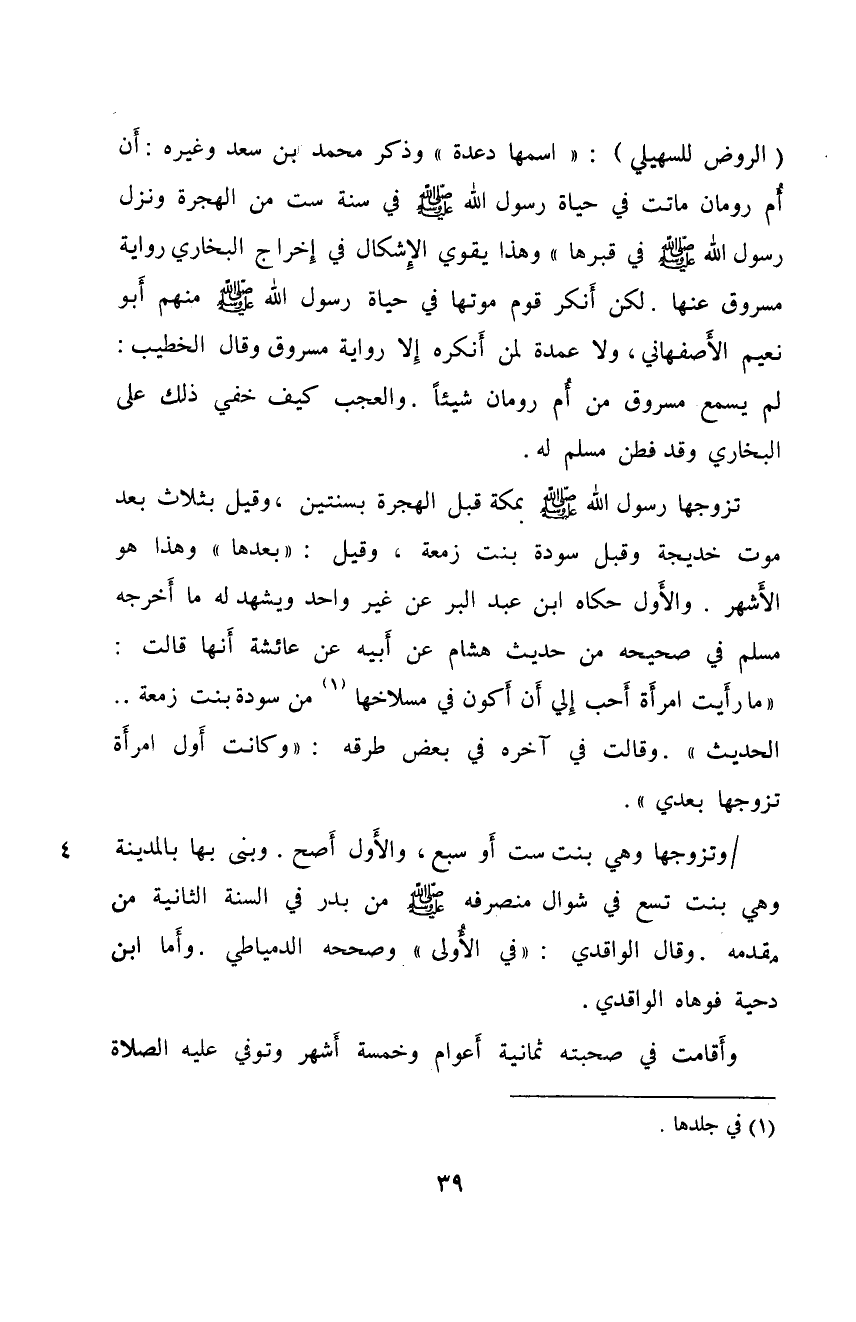 ( الروض للسهيلي ) : « اسمها دعدة » وذكر محمد بن سعد وغيره : أَن
أُم رومان ماتت في حياة رسول الله ﷺ في سنة ست من الهجرة ونزل
رسول الله ﷺ في قبرها » وهذا يقوي الإِشكال في إِخراج البخاري رواية
مسروق عنها . لكن أَنكر قوم موتها في حياة رسول الله ﷺ منهم أَبو
نعيم الأَصفهاني ، ولا عمدة لمن أَنكره إِلا رواية مسروق وقال الخطيب :
لم يسمع مسروق من أُم رومان شيئاً . والعجب كيف خفي ذلك على
البخاري وقد فطن مسلم له .
تزوجها رسول الله ﷺ بمكة قبل الهجرة بسنتين ، وقيل بثلاث بعد
موت خديجة وقبل سودة بنت زمعة ، وقيل : « بعدها » وهذا هو
الأَشهر . والأَول حكاه ابن عبد البر عن غير واحد ويشهد له ما أَخرجه
مسلم في صحيحه من حديث هشام عن أَبيه عن عائشة أَنها قالت :
« ما رأَيت امرأَة أَحب إِلي أَن أَكون في مسلاخها (١) من سودة بنت زمعة ..
الحديث » . وقالت في آخره في بعض طرقه : « وكانت أَول امرأَة
تزوجها بعدي » .
/ وتزوجها وهي بنت ست أَو سبع ، والأَول أَصح . وبنى بها بالمدينة ٤
وهي بنت تسع في شوال منصرفه ﷺ من بدر في السنة الثانية من
مقدمه . وقال الواقدي : « في الأُولى » وصححه الدمياطي . وأَما ابن
دحية فوهاه الواقدي .
وأَقامت في صحبته ثمانية أَعوام وخمسة أَشهر وتوفي عليه الصلاة
(١) في جلدها .
٣٩